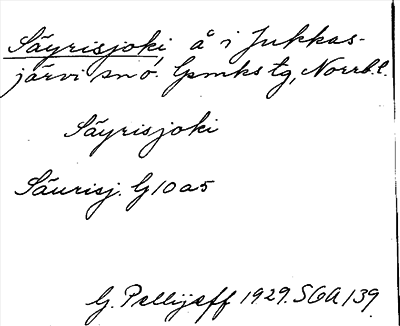 Säyrisjoki å i Jukkas-
järvi snö. Lpmks tg, Norrb. l.
Säyrisjoki
Säurisj. G10a5
G. Pellijeff 1929. SOA 139